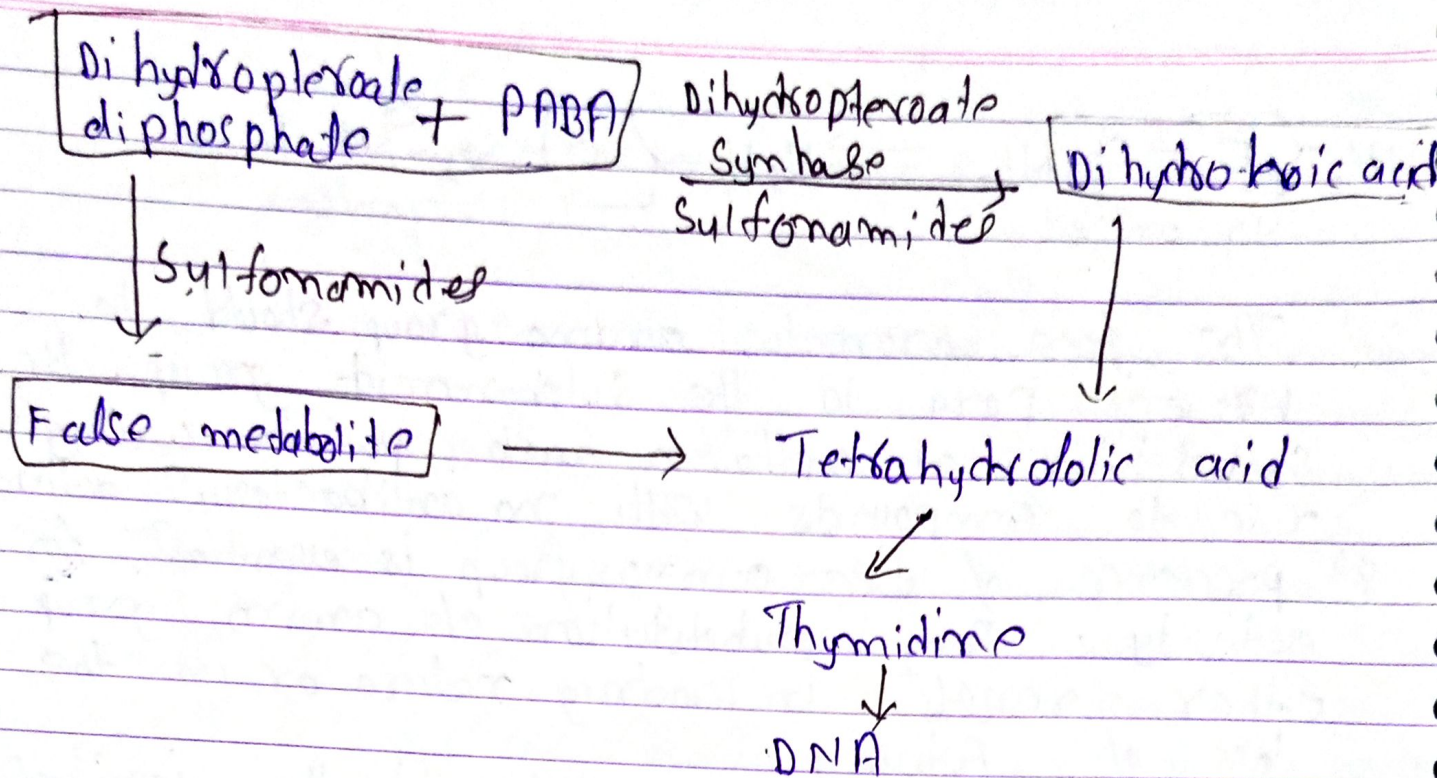 Dihydropteroate
diphosphate + PABA
Dihydropteroate
Synhase
Sulfonamides
Dihydro
acid
Sulfonamides
False medabolite
Tetrahydrofolic acid
Thymidine
DNA